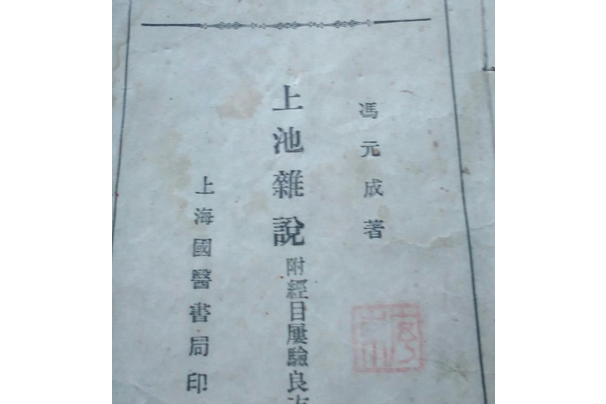 馮元成著
上池雜說
附經目屢驗良方
上海國醫書局印